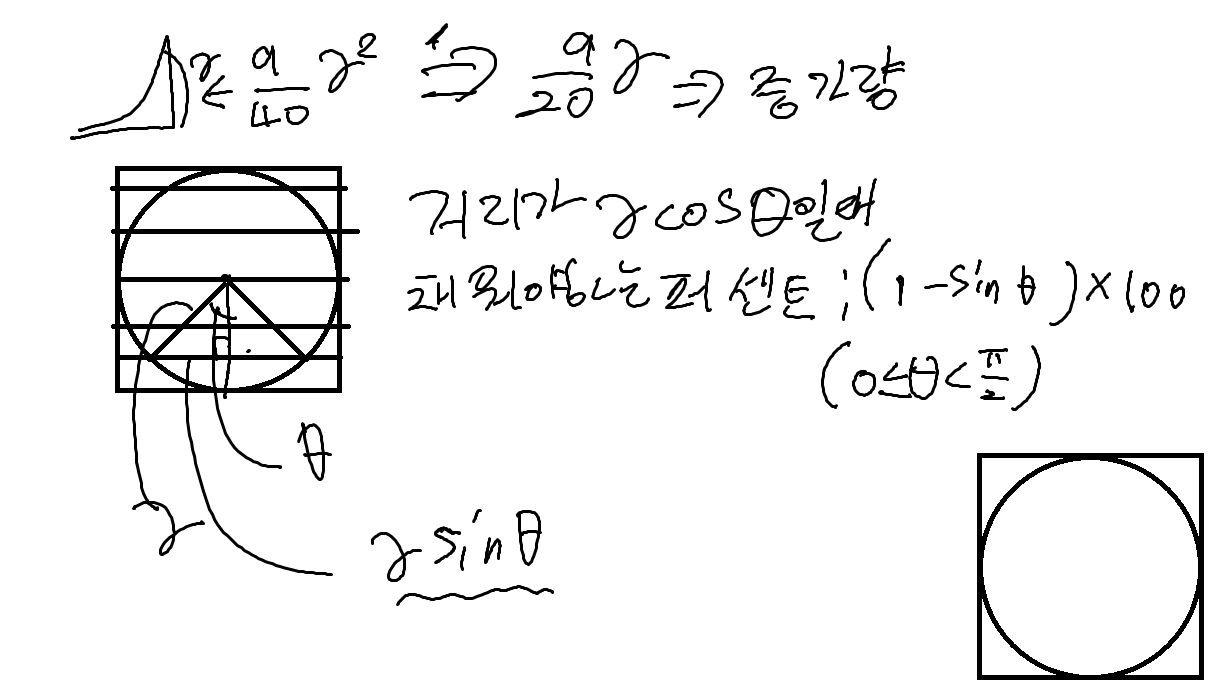 r ← 9/40 r² ⇒ 9/20 r ⇒ 증가량
거리가 r cosθ일때
채워야하는 퍼센트 ; (1 - sin θ) × 100
(0 ≤ θ < π/2)
θ
r
r sin θ